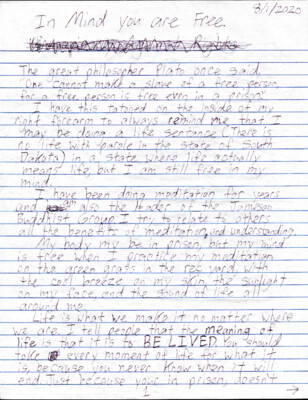 In Mind you are Free.
8/1/2020
The great philosopher Plato once said
One cannot make a slave of a free person,
for a free person is free even in a prison.
I have this tatooed on the inside of my
right forearm to always remind me that I
may be doing a life sentance (There is
no life with parole in the state of South
Dakota) in a state where life actually
means life, but I am still free in my
mind.
I have been doing meditation for years
and am also the leader of the Jameson
Buddhist Group. I try to relate to others
all the benefits of meditation, and understanding.
My body my be in prison, but my mind
is free when I practice my meditation
on the green grass in the rec yard, with
the cool breeze on my skin, the sunlight
on my face, and the sound of life all
around me.
Life is what we make it no matter where
we are. I tell people that the meaning of
life is that it is to BE LIVED. You should
take every moment of life for what it
is, because you never know when it will
end. Just because your in prison, doesn't
1 →